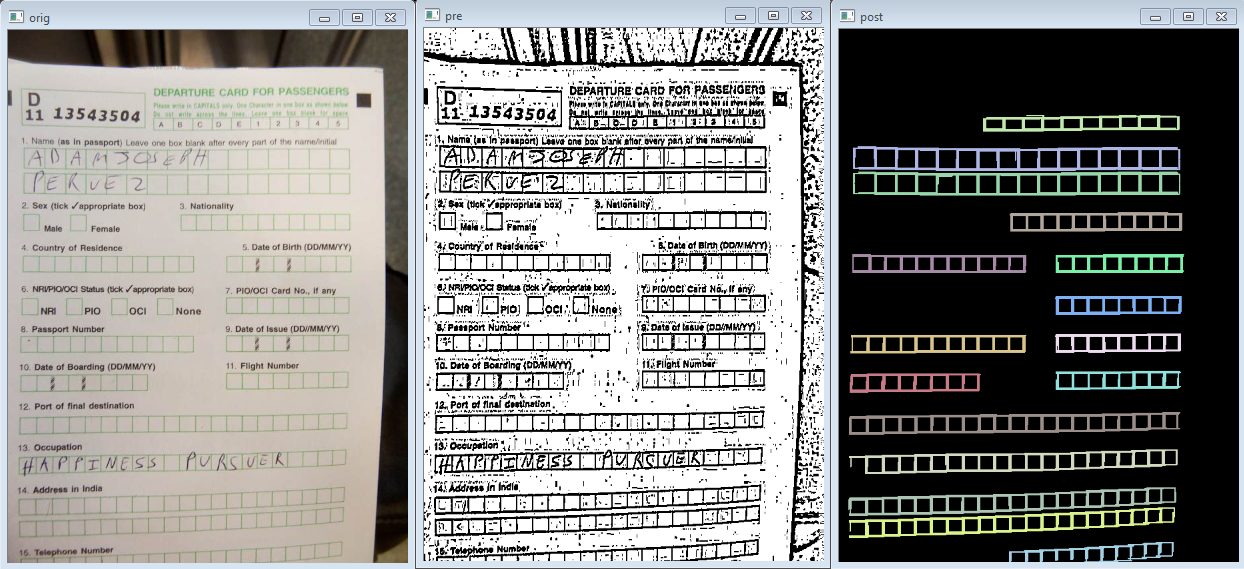 orig
D
11 13543504
DEPARTURE CARD FOR PASSENGERS
Please write in CAPITALS only. One Character in one box as shown below
Do not write across the lines. Leave one box blank for space
A B C D E 1 2 3 4 5
1. Name (as in passport) Leave one box blank after every part of the name/initial
ADAMJOSEPH
PERVEZ
2. Sex (tick ✓appropriate box)
Male Female
3. Nationality
4. Country of Residence
5. Date of Birth (DD/MM/YY)
6. NRI/PIO/OCI Status (tick ✓appropriate box)
NRI PIO OCI None
7. PIO/OCI Card No., if any
8. Passport Number
9. Date of Issue (DD//MM/YY)
10. Date of Boarding (DD/MM/YY)
11. Flight Number
12. Port of final destination
13. Occupation
HAPPINESS PURSUER
14. Address in India
15. Telephone Number
pre
D
11 13543504
DEPARTURE CARD FOR PASSENGERS
Please write in CAPITALS only. One Character in one box as shown below
Do not write across the lines. Leave one box blank for space
1. Name (as in passport) Leave one box blank after every part of the name/initial
ADAMJOSEPH
PERVEZ
2. Sex (tick ✓appropriate box)
Male Female
3. Nationality
4. Country of Residence
5. Date of Birth (DD/MM/YY)
6. NRI/PIO/OCI Status (tick ✓appropriate box)
NRI PIO OCI None
7. PIO/OCI Card No., if any
8. Passport Number
9. Date of Issue (DD//MM/YY)
10. Date of Boarding (DD/MM/YY)
11. Flight Number
12. Port of final destination
13. Occupation
HAPPINESS PURSUER
14. Address in India
15. Telephone Number
post